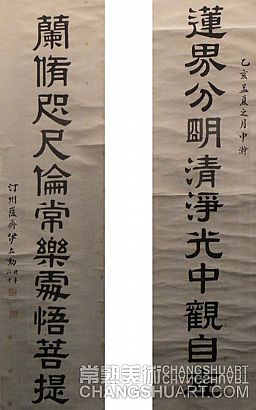 蓮界分明清淨光中觀自在
乙亥孟夏之月中澣
蘭脩咫尺倫常樂處悟菩提
汀州廣齋伊立勳
常熟美術
CHANGSHUART
CHANGSHUART.COM